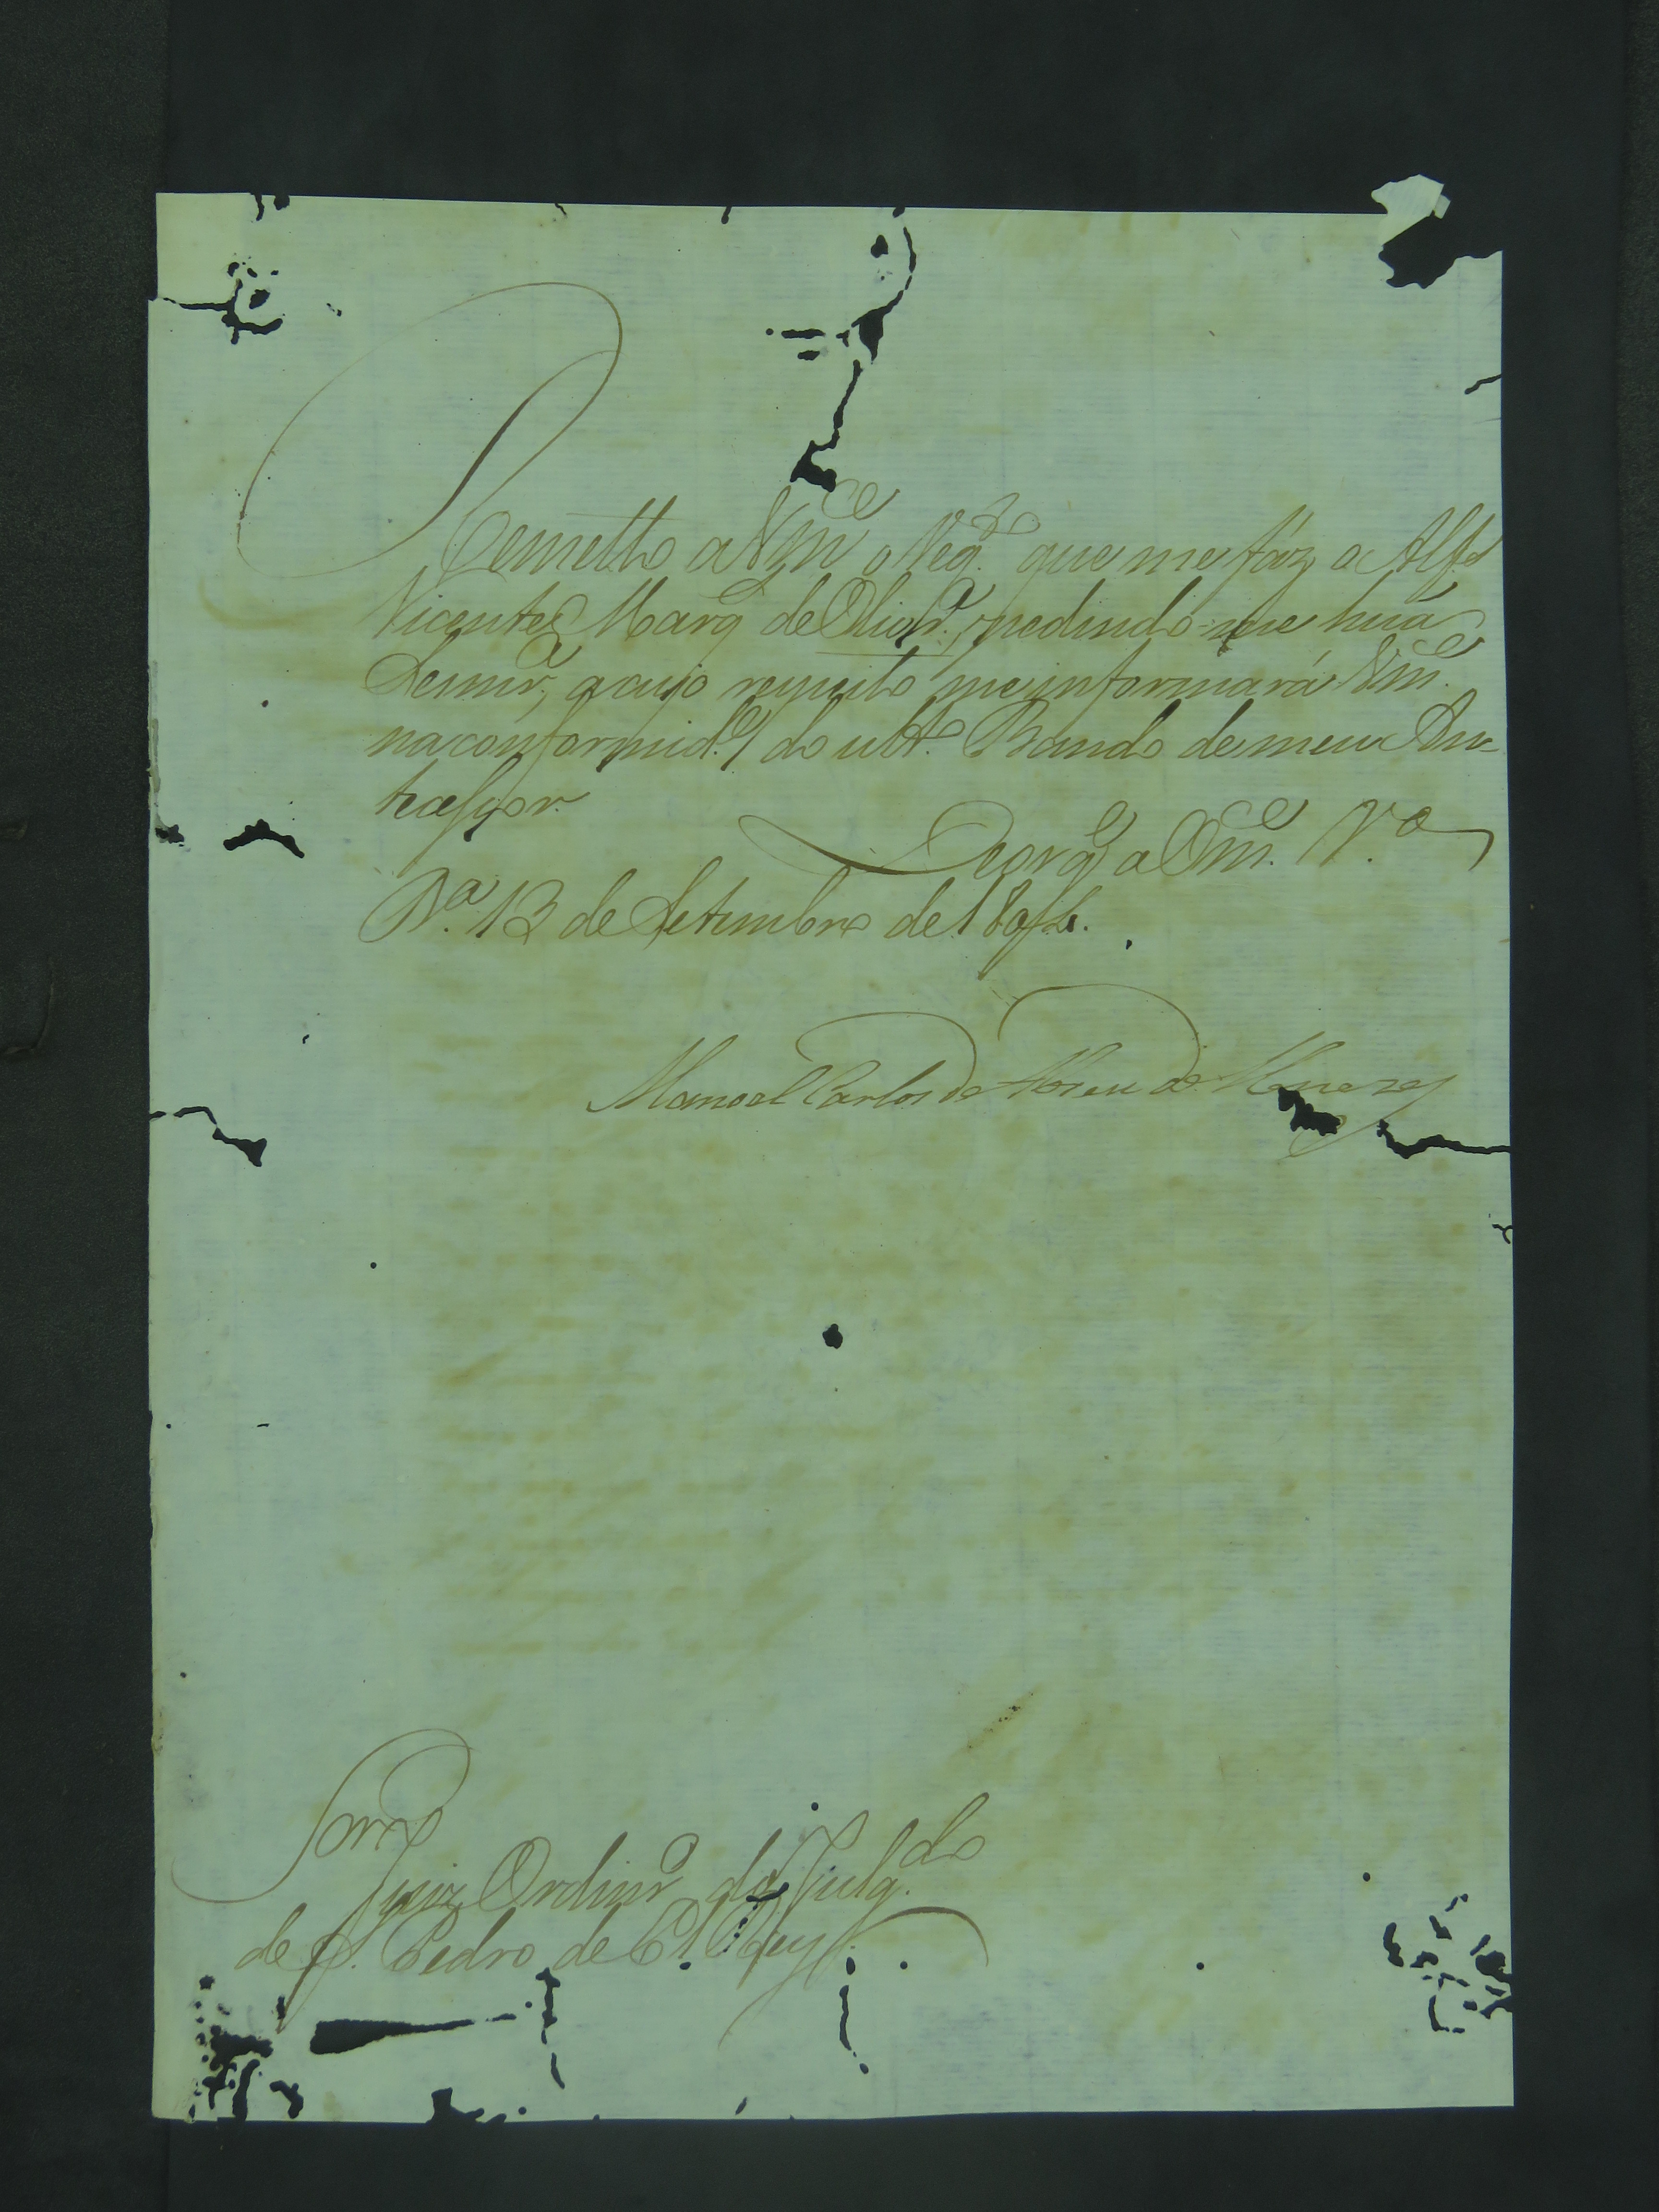 Remetto a Vm.ce o Req.to que me fáz o Alf.s
Vicente Marq de Olivr.a, pedindo-me huá
Sesmr.a, a cujo respeito me informará Vm.ce
na conformid.e do ult.o Bando de meu An-
tecessor.
Deos g.e a Vm.ce V.a
B.a 13 de Setembro de 1804.
Manoel Carlos de Abreu de Menezes
Snr.
Juiz Ordinr.o do Julg.do
de S. Pedro de El Rey.